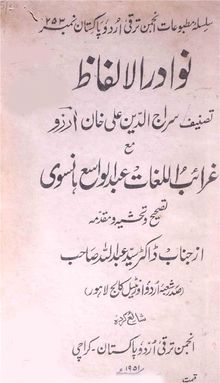 سلسلہ مطبوعات انجمن ترقی اردو پاکستان نمبر ۲۵۳
نوادر الالفاظ
تصنیف سراج الدین علی خان آرزو
مع
غرائب اللغات عبدالواسع ہانسوی
تصحیح و تحشیہ و مقدمہ
از جناب ڈاکٹر سید عبداللہ صاحب
(صدر شعبۂ اردو اورینٹل کالج لاہور)
شائع کردہ
انجمن ترقی اردو پاکستان - کراچی
۱۹۵۱ء
قیمت